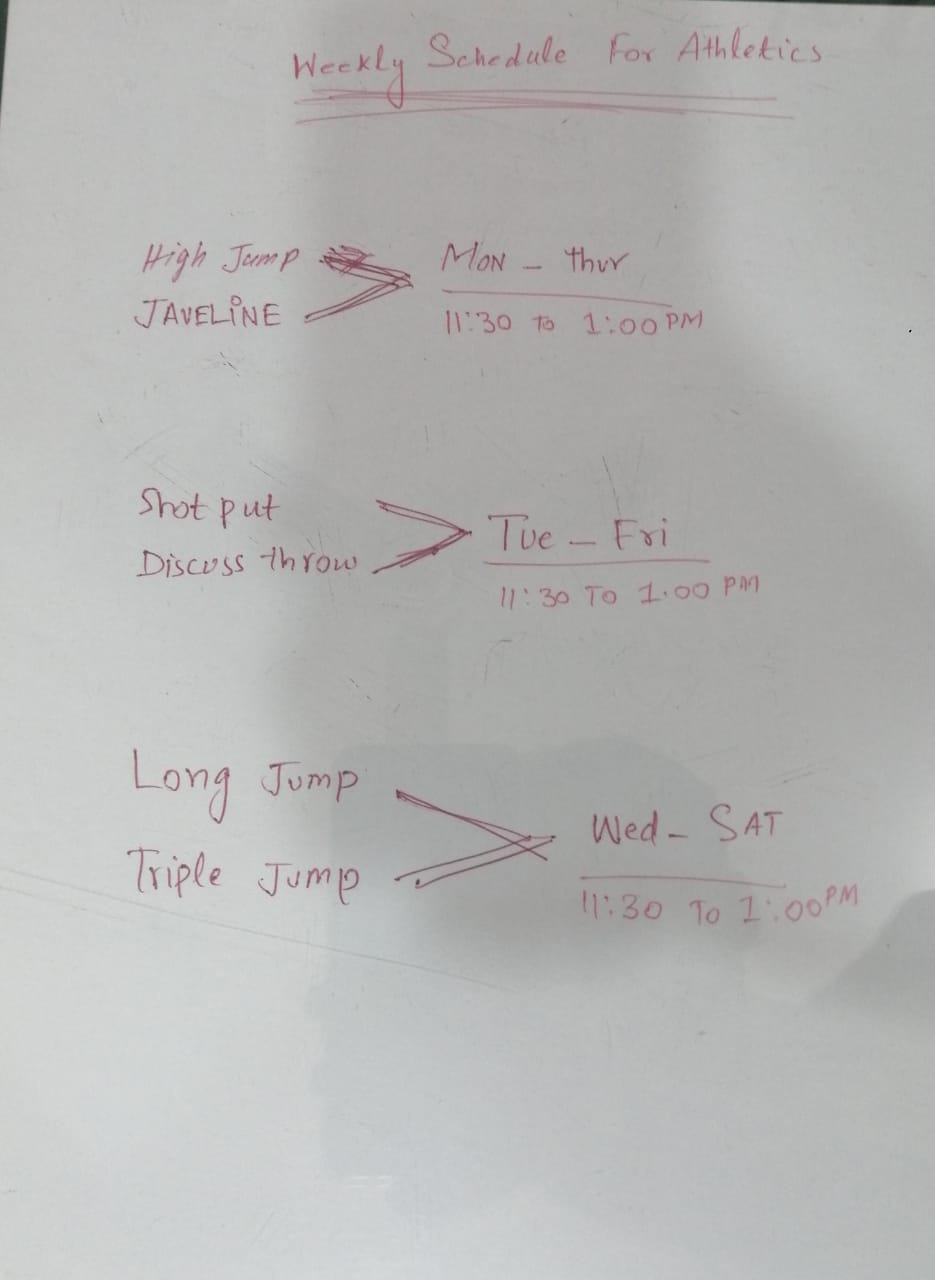 Weekly Schedule For Athletics
High Jump
JAVELINE
MON - thur
11:30 TO 1:00 PM
Shot put
Discuss throw
Tue - Fri
11:30 TO 1.00 PM
Long Jump
Triple Jump
Wed - SAT
11:30 TO 1:00 PM